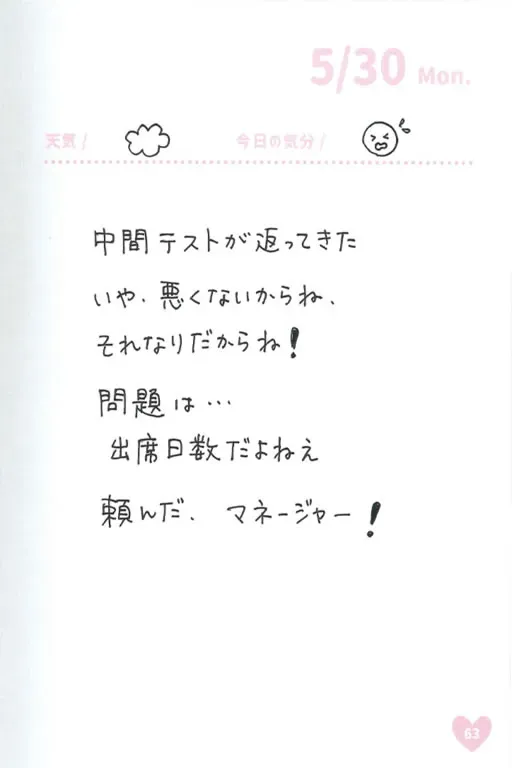 5/30 Mon.
天気 / 今日の気分 /
中間テストが返ってきた
いや、悪くないからね、
それなりだからね!
問題は…
出席日数だよねえ
頼んだ、マネージャー!
63